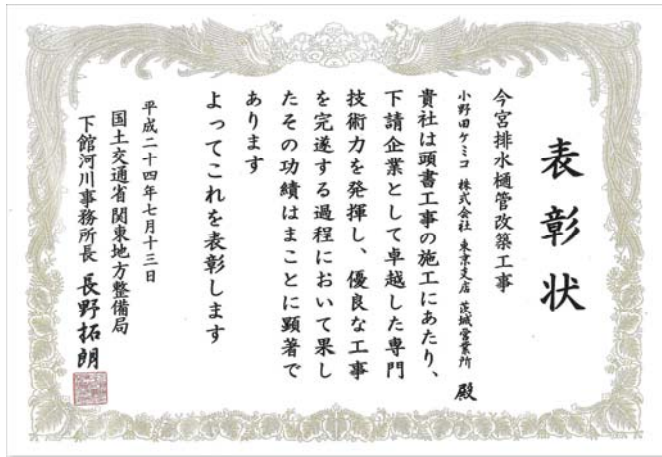 表彰状
今宮排水樋管改築工事
小野田ケミコ 株式会社 東京支店 茨城営業所 殿
貴社は頭書工事の施工にあたり、
下請企業として卓越した専門
技術力を発揮し、優良な工事
を完遂する過程において果し
たその功績はまことに顕著で
あります
よってこれを表彰します
平成二十四年七月十三日
国土交通省関東地方整備局
下館河川事務所長 長野拓朗